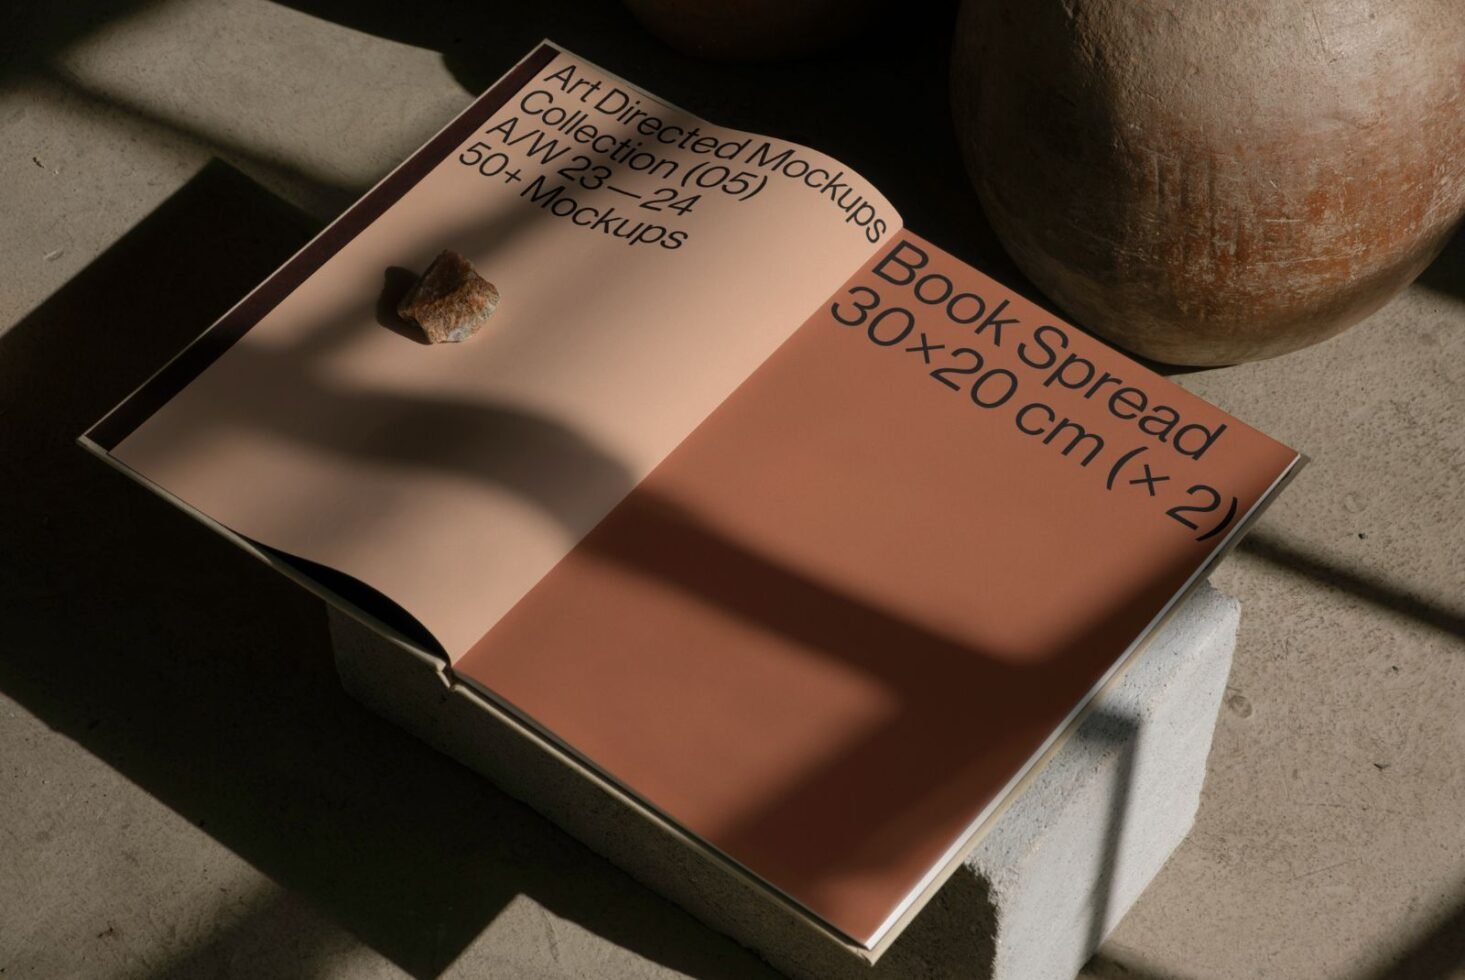 Art Directed Mockups
Collection (05)
A/W 23—24
50+ Mockups
Book Spread
30×20 cm (× 2)